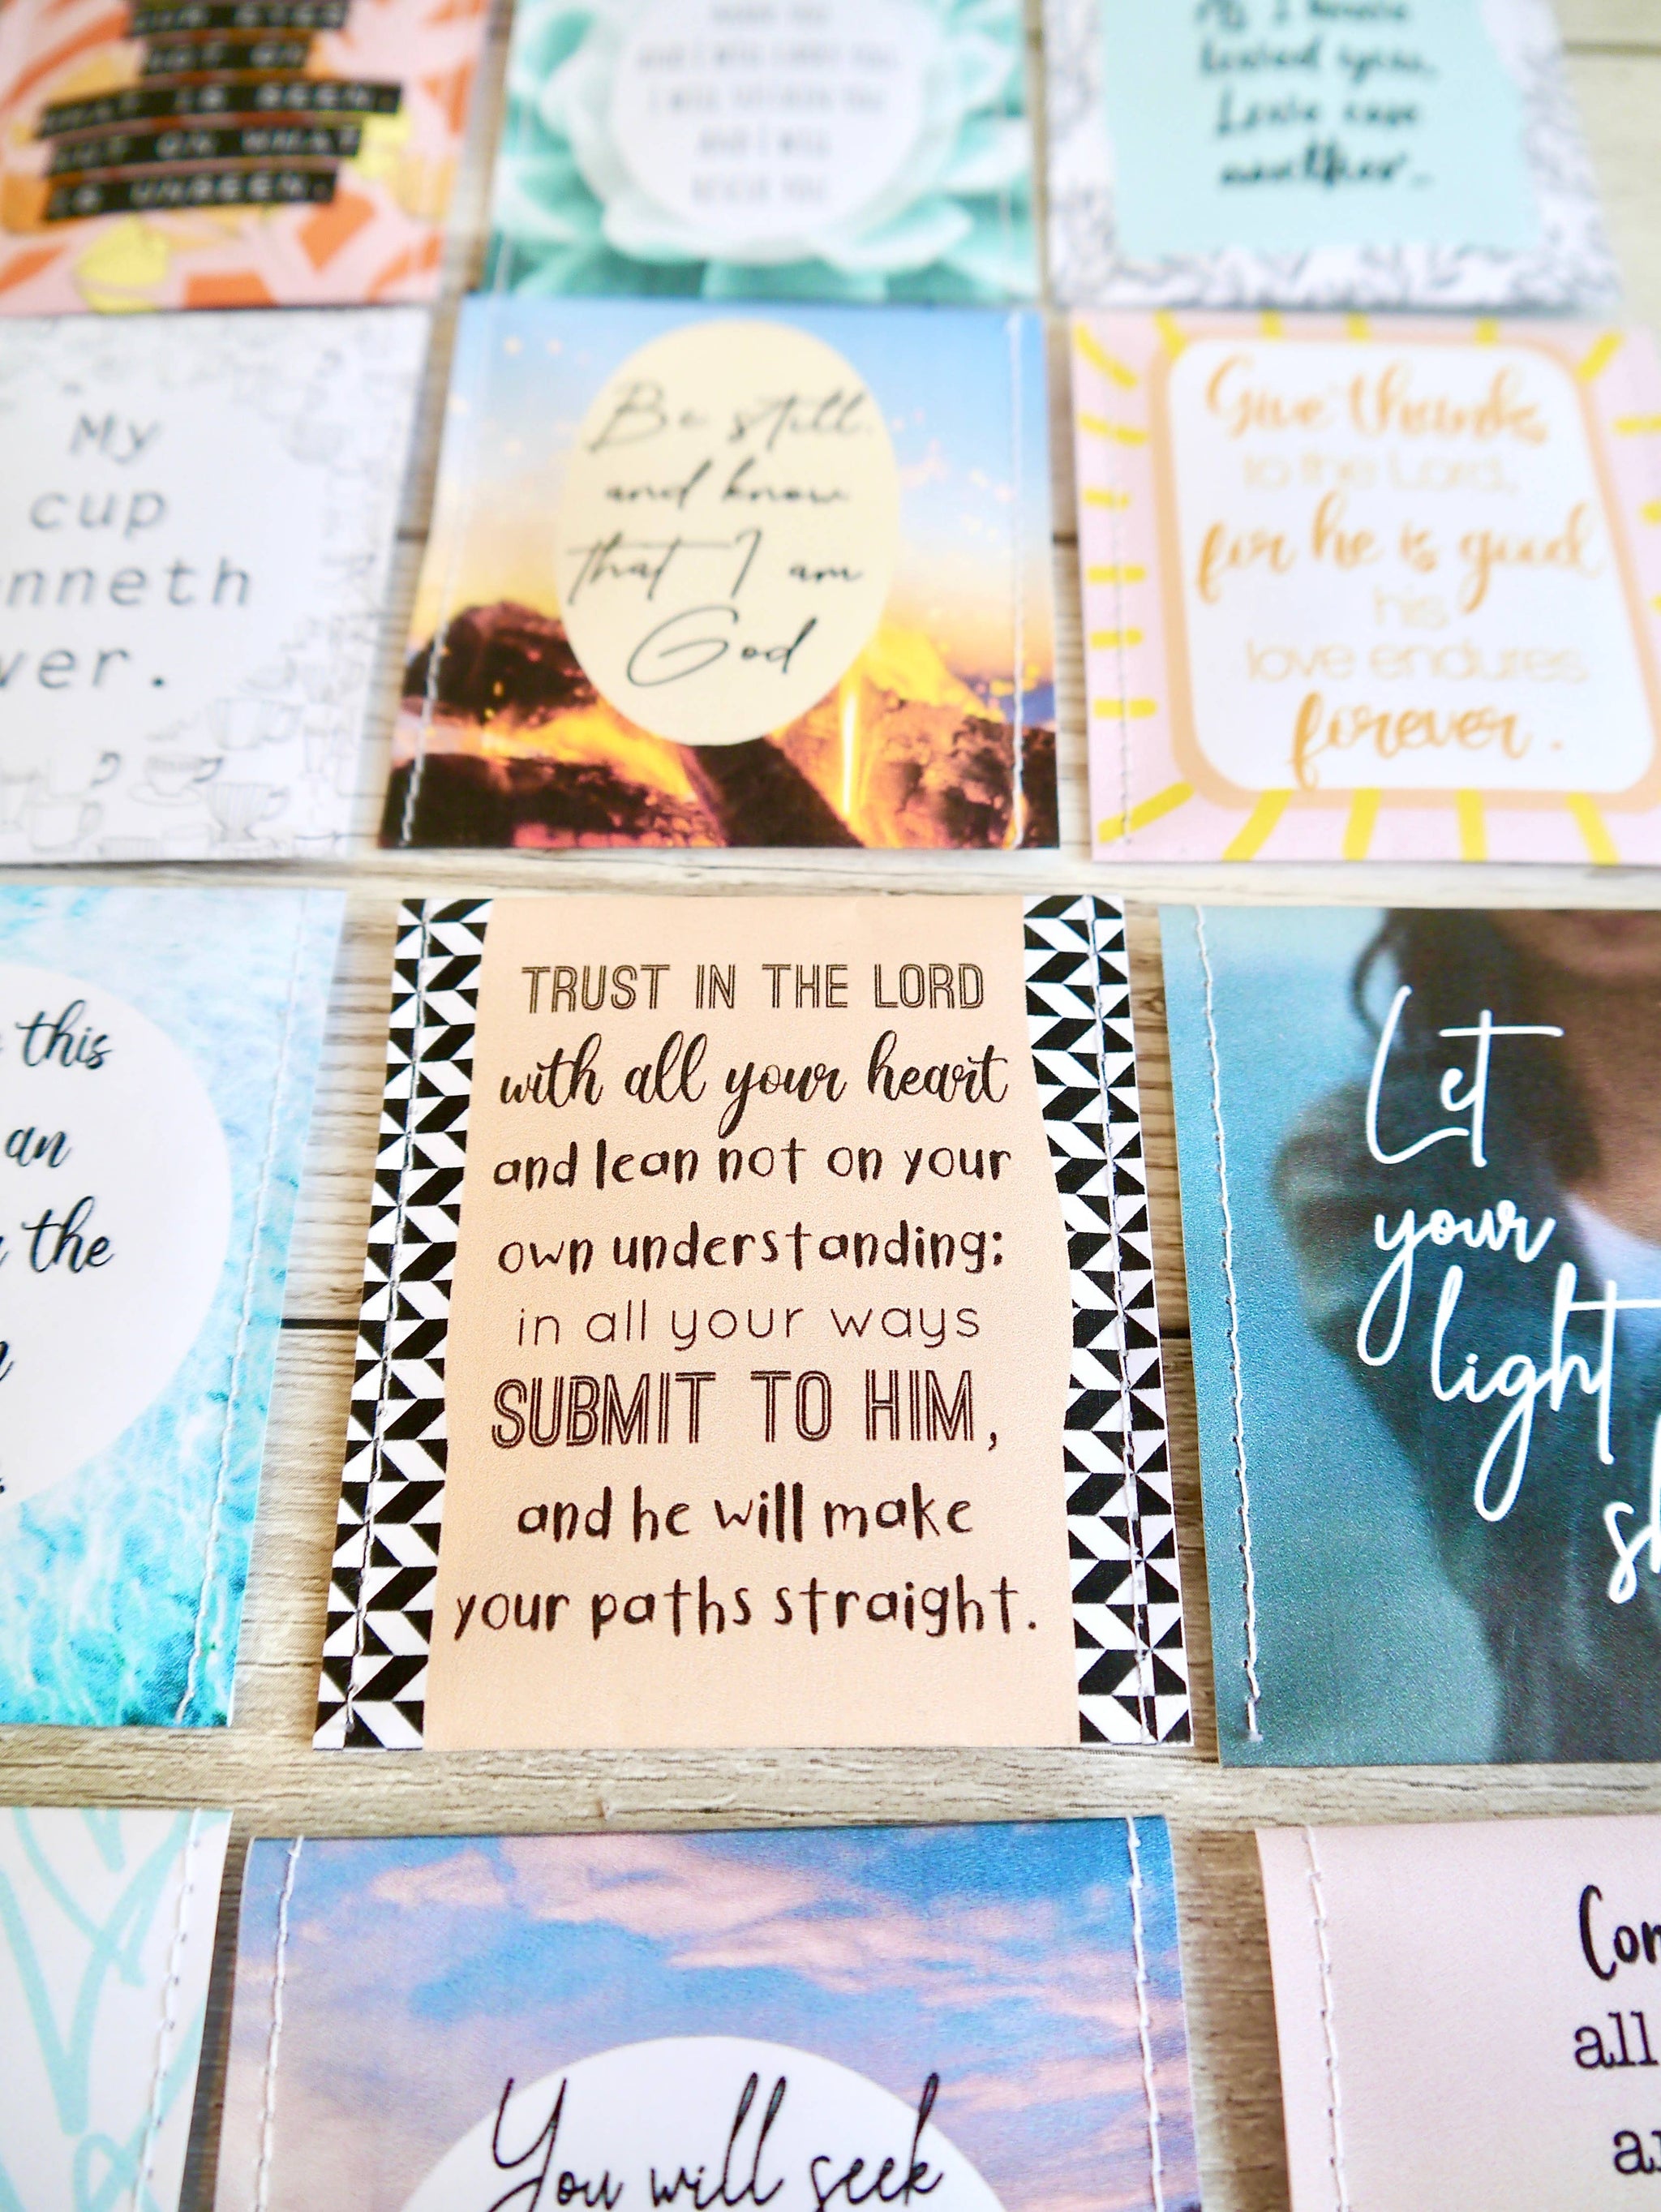 OUR EYES
NOT ON
WHAT IS SEEN,
BUT ON WHAT
IS UNSEEN.
AND I WILL CARRY YOU;
I WILL SUSTAIN YOU
AND I WILL
RESCUE YOU
As I have
loved you,
Love one
another.
My
cup
nneth
ver.
Be still,
and know
that I am
God
Give thanks
to the Lord,
for he is good
his
love endures
forever.
this
an
the
TRUST IN THE LORD
with all your heart
and lean not on your
own understanding:
in all your ways
SUBMIT TO HIM,
and he will make
your paths straight.
Let
your
light
sh
You will seek
Com
all